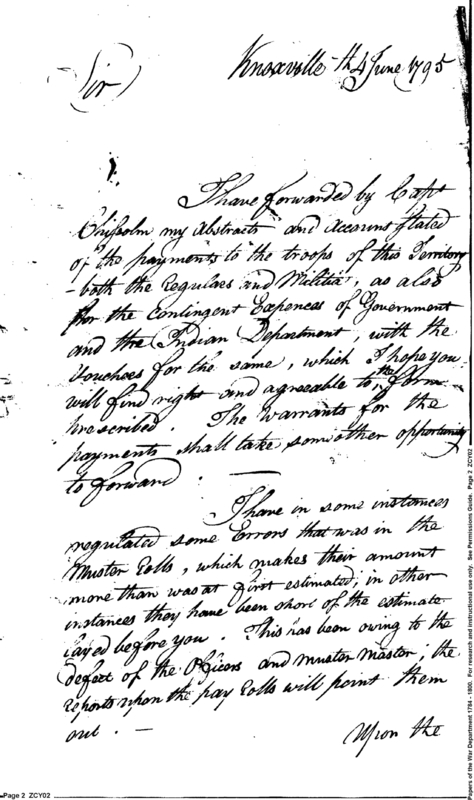 Knoxville 4th June 1795
Sir
I have forwarded by Capt
Chisholm my Abstracts and accounts Stated
of the payments to the troops of this Territory
both the Regulars and Militia, as also
for the Contingent Expences of Government
and the Indian Department, with the
Vouchers for the same, which I hope you
will find right and agreeable to the form
prescribed. The Warrants for the
payments shall take some other opportunity
to forward. —
I have in some instances
regulated some Errors that was in the
Muster Rolls, which makes their amount
more than was at first estimated; in other
instances they have been short of the estimate
layed before you. This has been owing to the
defect of the Officers and Muster Master; the
reports upon the pay Rolls will point them
out. —
Upon the
Page 2 ZCY02
Papers of the War Department 1784 - 1800. For research and instructional use only. See Permissions Guide. Page 2 ZCY02